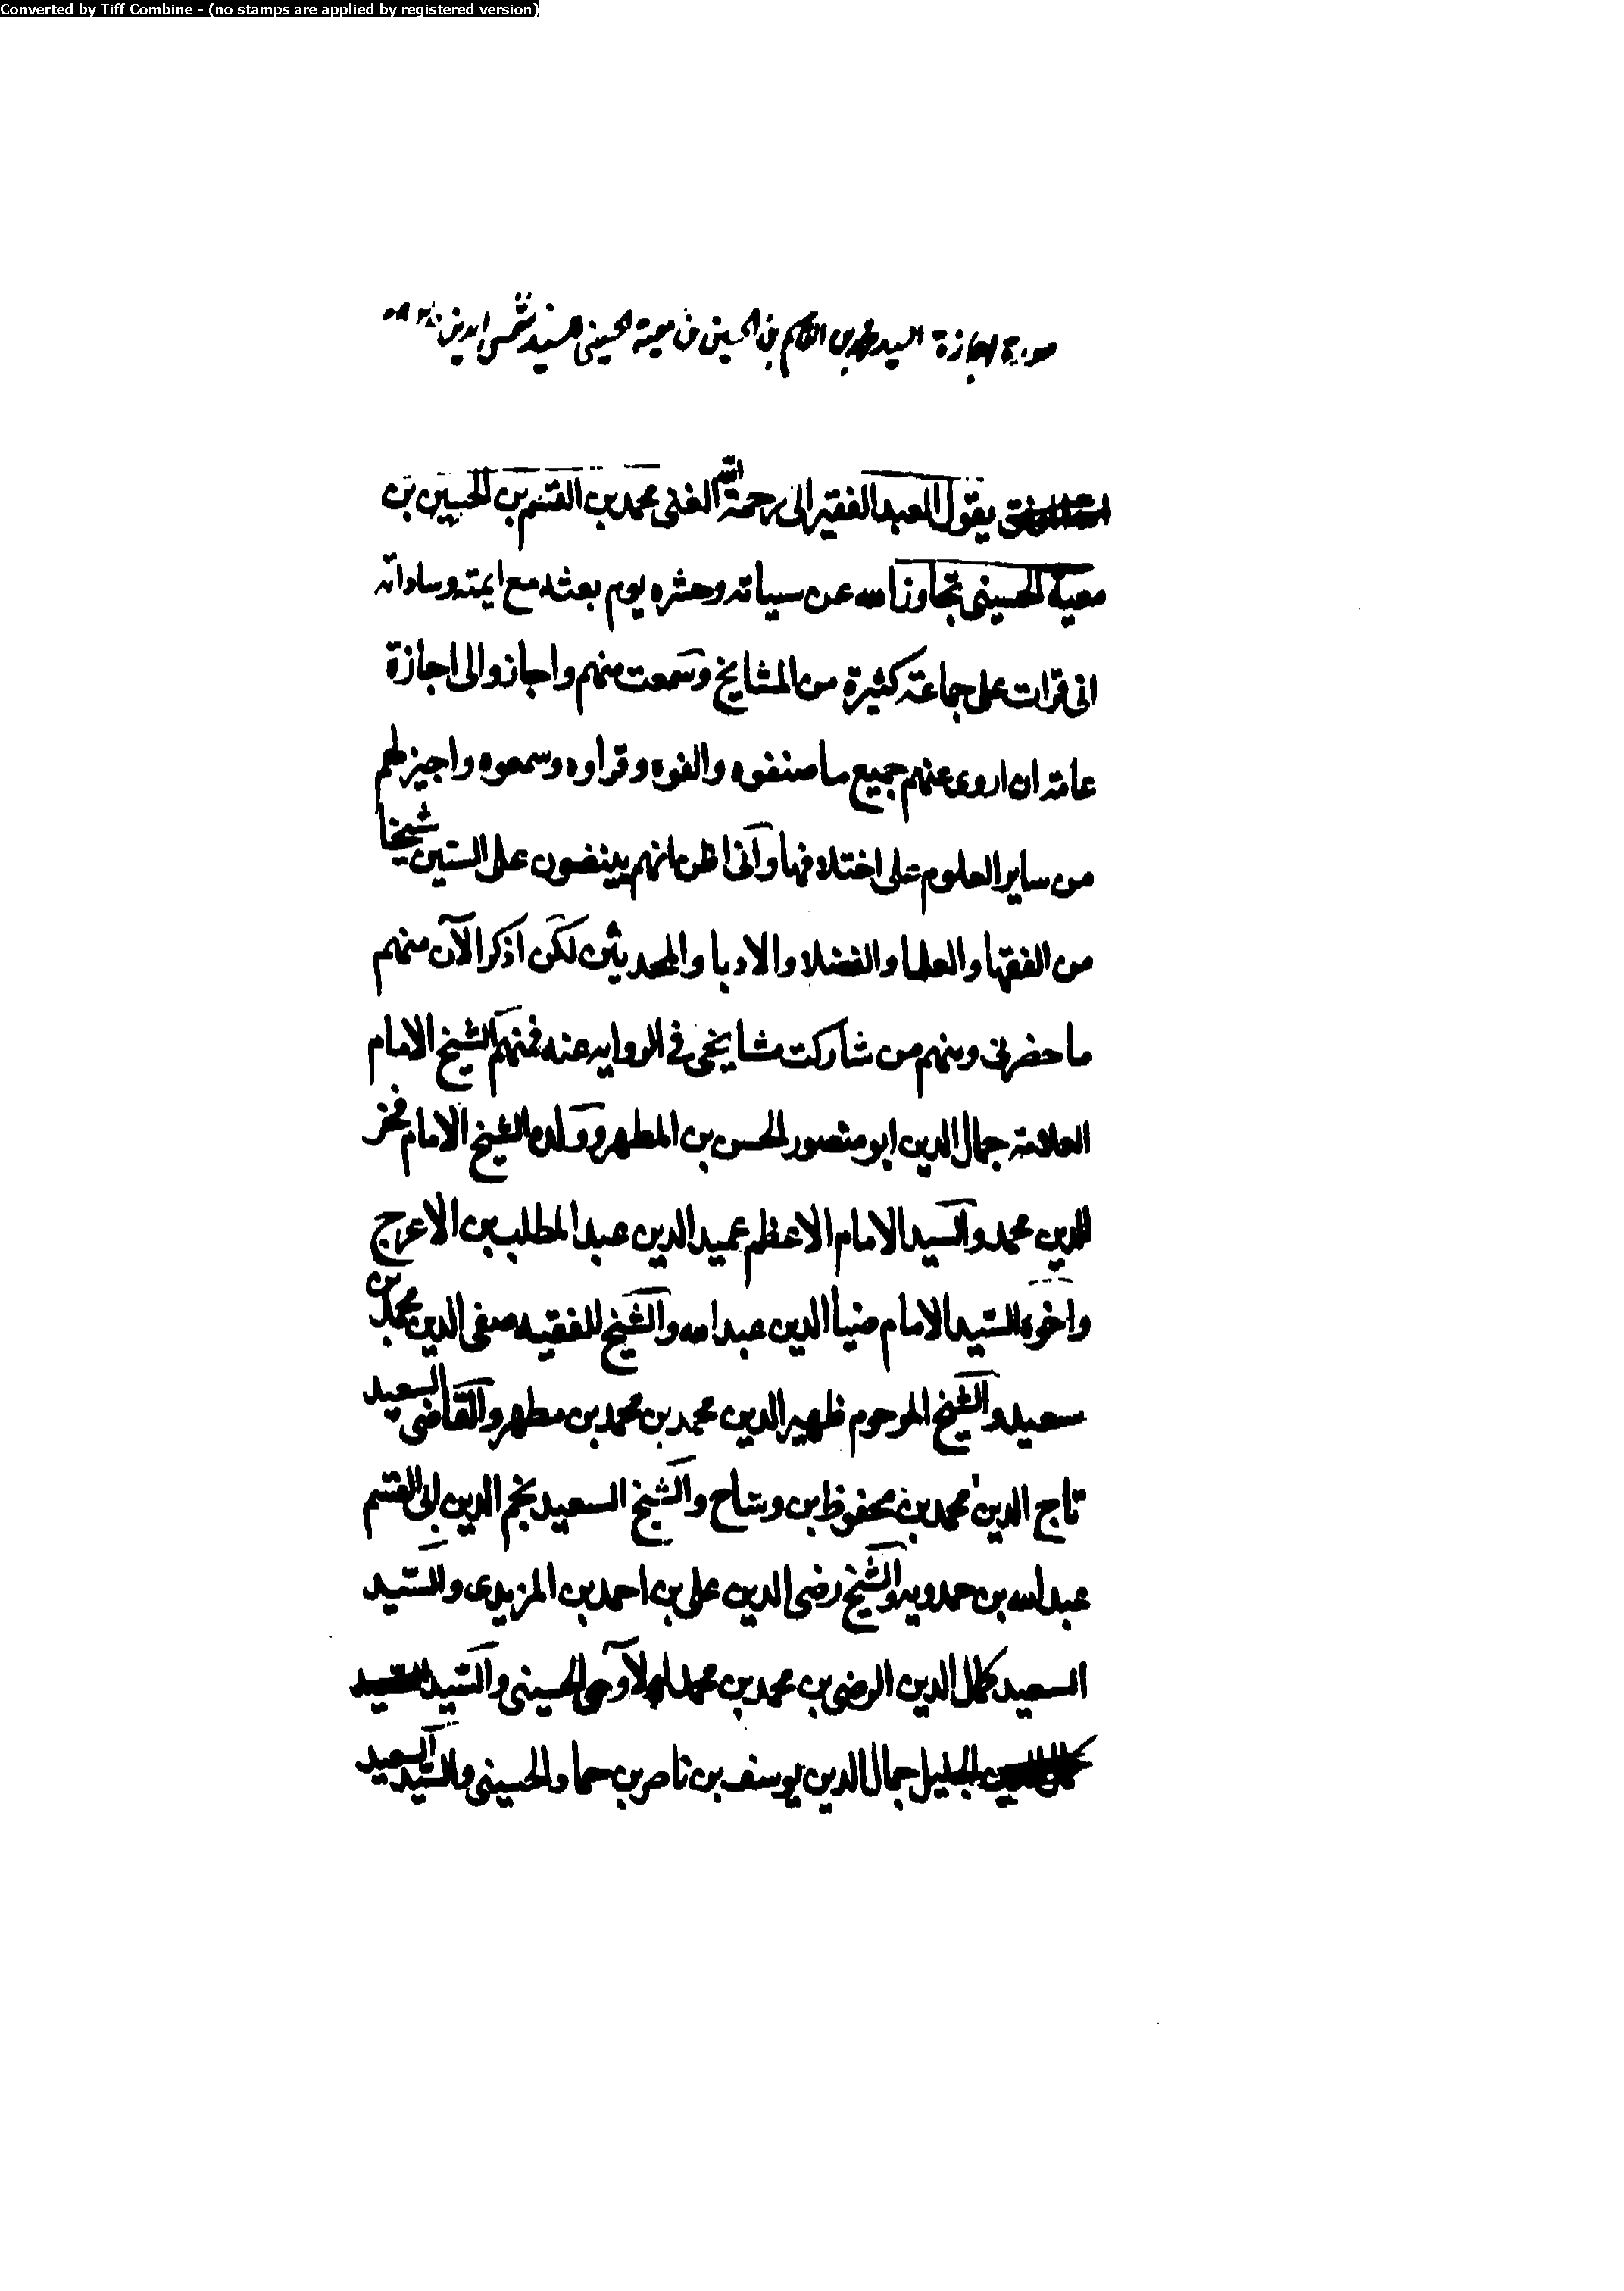 Converted by Tiff Combine - (no stamps are applied by registered version)
صورة اجازة السيد محمد بن القاسم بن الحسين بن معية الحسيني للسيد شمس الدين
يقول العبد الفقير الى رحمة الله الغنى محمد بن القسم بن الحسين بن
معية الحسينى تجاوز الله عن سياته وحشره يوم بعثه مع ايمته وساداته
انى قرات على جماعة كثيرة من المشايخ وسمعت منهم واجازوا لى اجازة
عامة ان اروى عنهم جميع ما صنفوه والفوه وقراوه وسمعوه واجيز لهم
من ساير العلوم على اختلافها وانى اظن انهم ينيفون على الستين شيخا
من الفقها والعلما والفضلا والادبا والمحدثين لكن اذكر الآن منهم
ما حضرنى ومنهم من شاركت مشايخى فى الروايه عنه فمنهم الشيخ الامام
العلامة جمال الدين ابو منصور الحسن بن المطهر وولده الشيخ الامام فخر
الدين محمد والسيد الامام الاعظم عميد الدين عبد المطلب بن الاعرج
واخوه السيد الامام ضيا الدين عبد الله والشيخ الفقيه صفى الدين محمد بن
سعيد والشيخ المرحوم ظهير الدين محمد بن محمد بن مطهر والقاضى السعيد
تاج الدين محمد بن محفوظ بن وشاح والشيخ السعيد نجم الدين ابى القسم
عبد الله بن حمدويه والشيخ رضى الدين على بن احمد بن المزيدى والسيد
السعيد كمال الدين الرضى بن محمد بن محمد الآوى الحسينى والسيد
الجليل جمال الدين يوسف بن ناصر بن حماد الحسينى والسيد السعيد